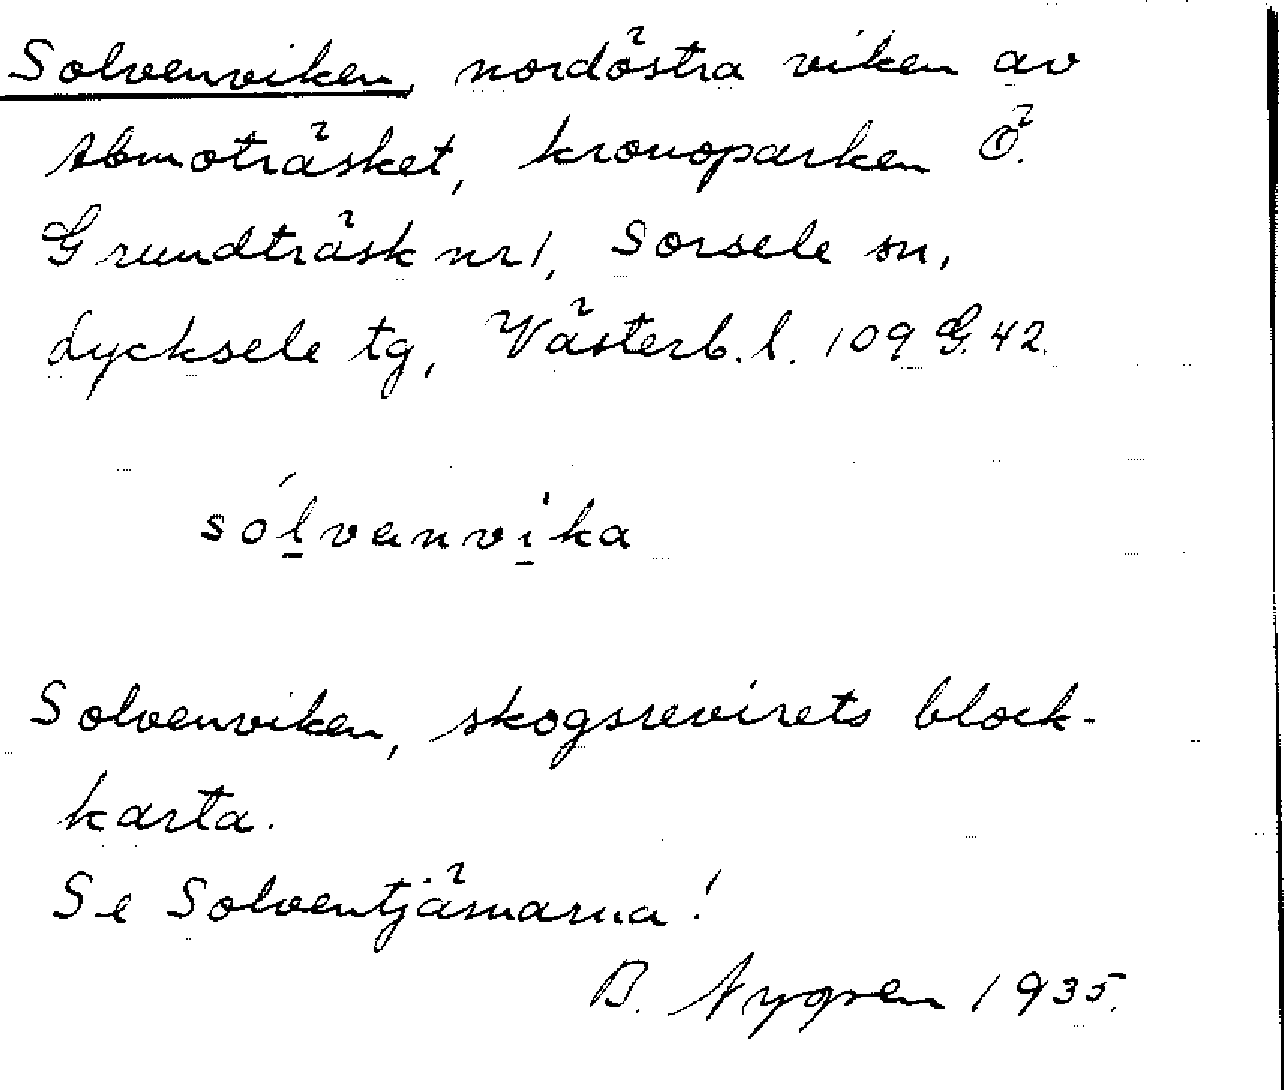 Solvenviken, nordöstra viken av
Abmoträsket, kronoparken Ö.
Grundträsk nr 1, Sorsele sn,
Lycksele tg, Västerb. l. 109 G. 42.
sólvanvika
Solvenviken, skogsrevirets block-
karta.
Se Solventjärnarna!
B. Nygren 1935.